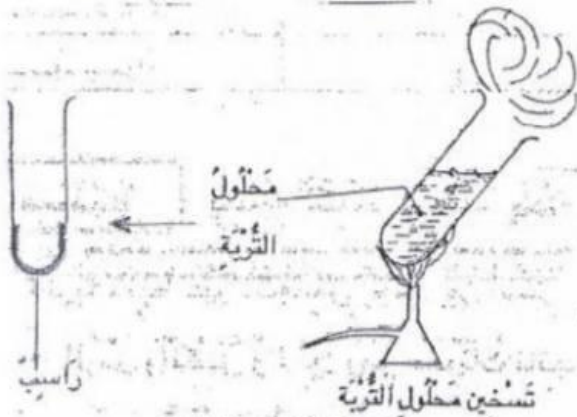 مَحْلُولُ
التُّرْبَةِ
رَاسِبٌ
تَسْخين مَحْلُول اَلتُّرْبَة